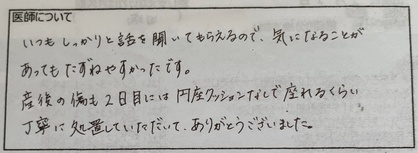 医師について
いつもしっかりと話を聞いてもらえるので、気になることが
あってもたずねやすかったです。
産後の傷も2日目には円座クッションなしで座れるくらい
丁寧に処置していただいて、ありがとうございました。